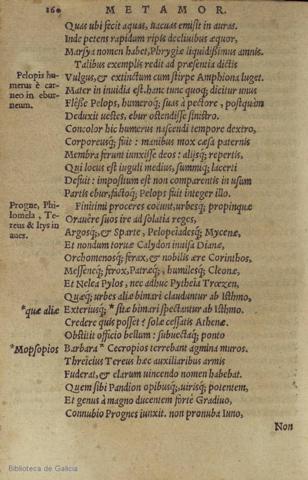 160 METAMOR.
Quas ubi fecit aquas, uacuas emisit in auras.
Inde petens rapidum ripis decliuibus æquor,
Marsya nomen habet, Phrygiæ liquidissimus amnis.
Talibus exemplo redit ad præsentia dictis
Pelopis hu=
merus è car=
neo in ebur=
neum.
Vulgus, & extinctum cum stirpe Amphiona luget.
Mater in inuidia est. hanc tunc quoq; dicitur unus
Flesse Pelops, humeroq; suas à pectore, postquàm
Deduxit uestes, ebur ostendisse sinistro.
Concolor hic humerus nascendi tempore dextro,
Corporeusq; fuit: manibus mox cæsa paternis
Membra ferunt iunxisse deos: alijsq; repertis,
Qui locus est iuguli medius, summiq; lacerti
Defuit: impositum est non comparentis in usum
Partis ebur, factoq; Pelops fuit integer illo.
Progne, Phi=
lomela, Te=
reus & Itys in
aues.
Finitimi proceres coeunt, urbesq; propinquæ
Orauere suos ire ad solatia reges,
Argosq;, & Sparte, Pelopeiadesq; Mycenæ,
Et nondum toruæ Calydon inuisa Dianæ,
Orchomenosq; ferax, & nobilis ære Corinthos,
Messeneq; ferox, Patræq;, humilesq; Cleonæ,
Et Nelea Pylos, nec adhuc Pytheia Trœzen,
Quæq; urbes aliæ bimari clauduntur ab Isthmo,
*quæ aliæ
Exteriusq; * sitæ bimari spectantur ab Isthmo.
Credere quis posset? solæ cessatis Athenæ.
Obstitit officio bellum: subuectaq; ponto
*Mopsopios
Barbara * Cecropios terrebant agmina muros.
Threicius Tereus hæc auxiliaribus armis
Fuderat, & clarum uincendo nomen habebat.
Quem sibi Pandion opibusq;, uirisq; potentem,
Et genus à magno ducentem fortè Gradiuo,
Connubio Prognes iunxit. non pronuba Iuno,
Non
Biblioteca de Galicia